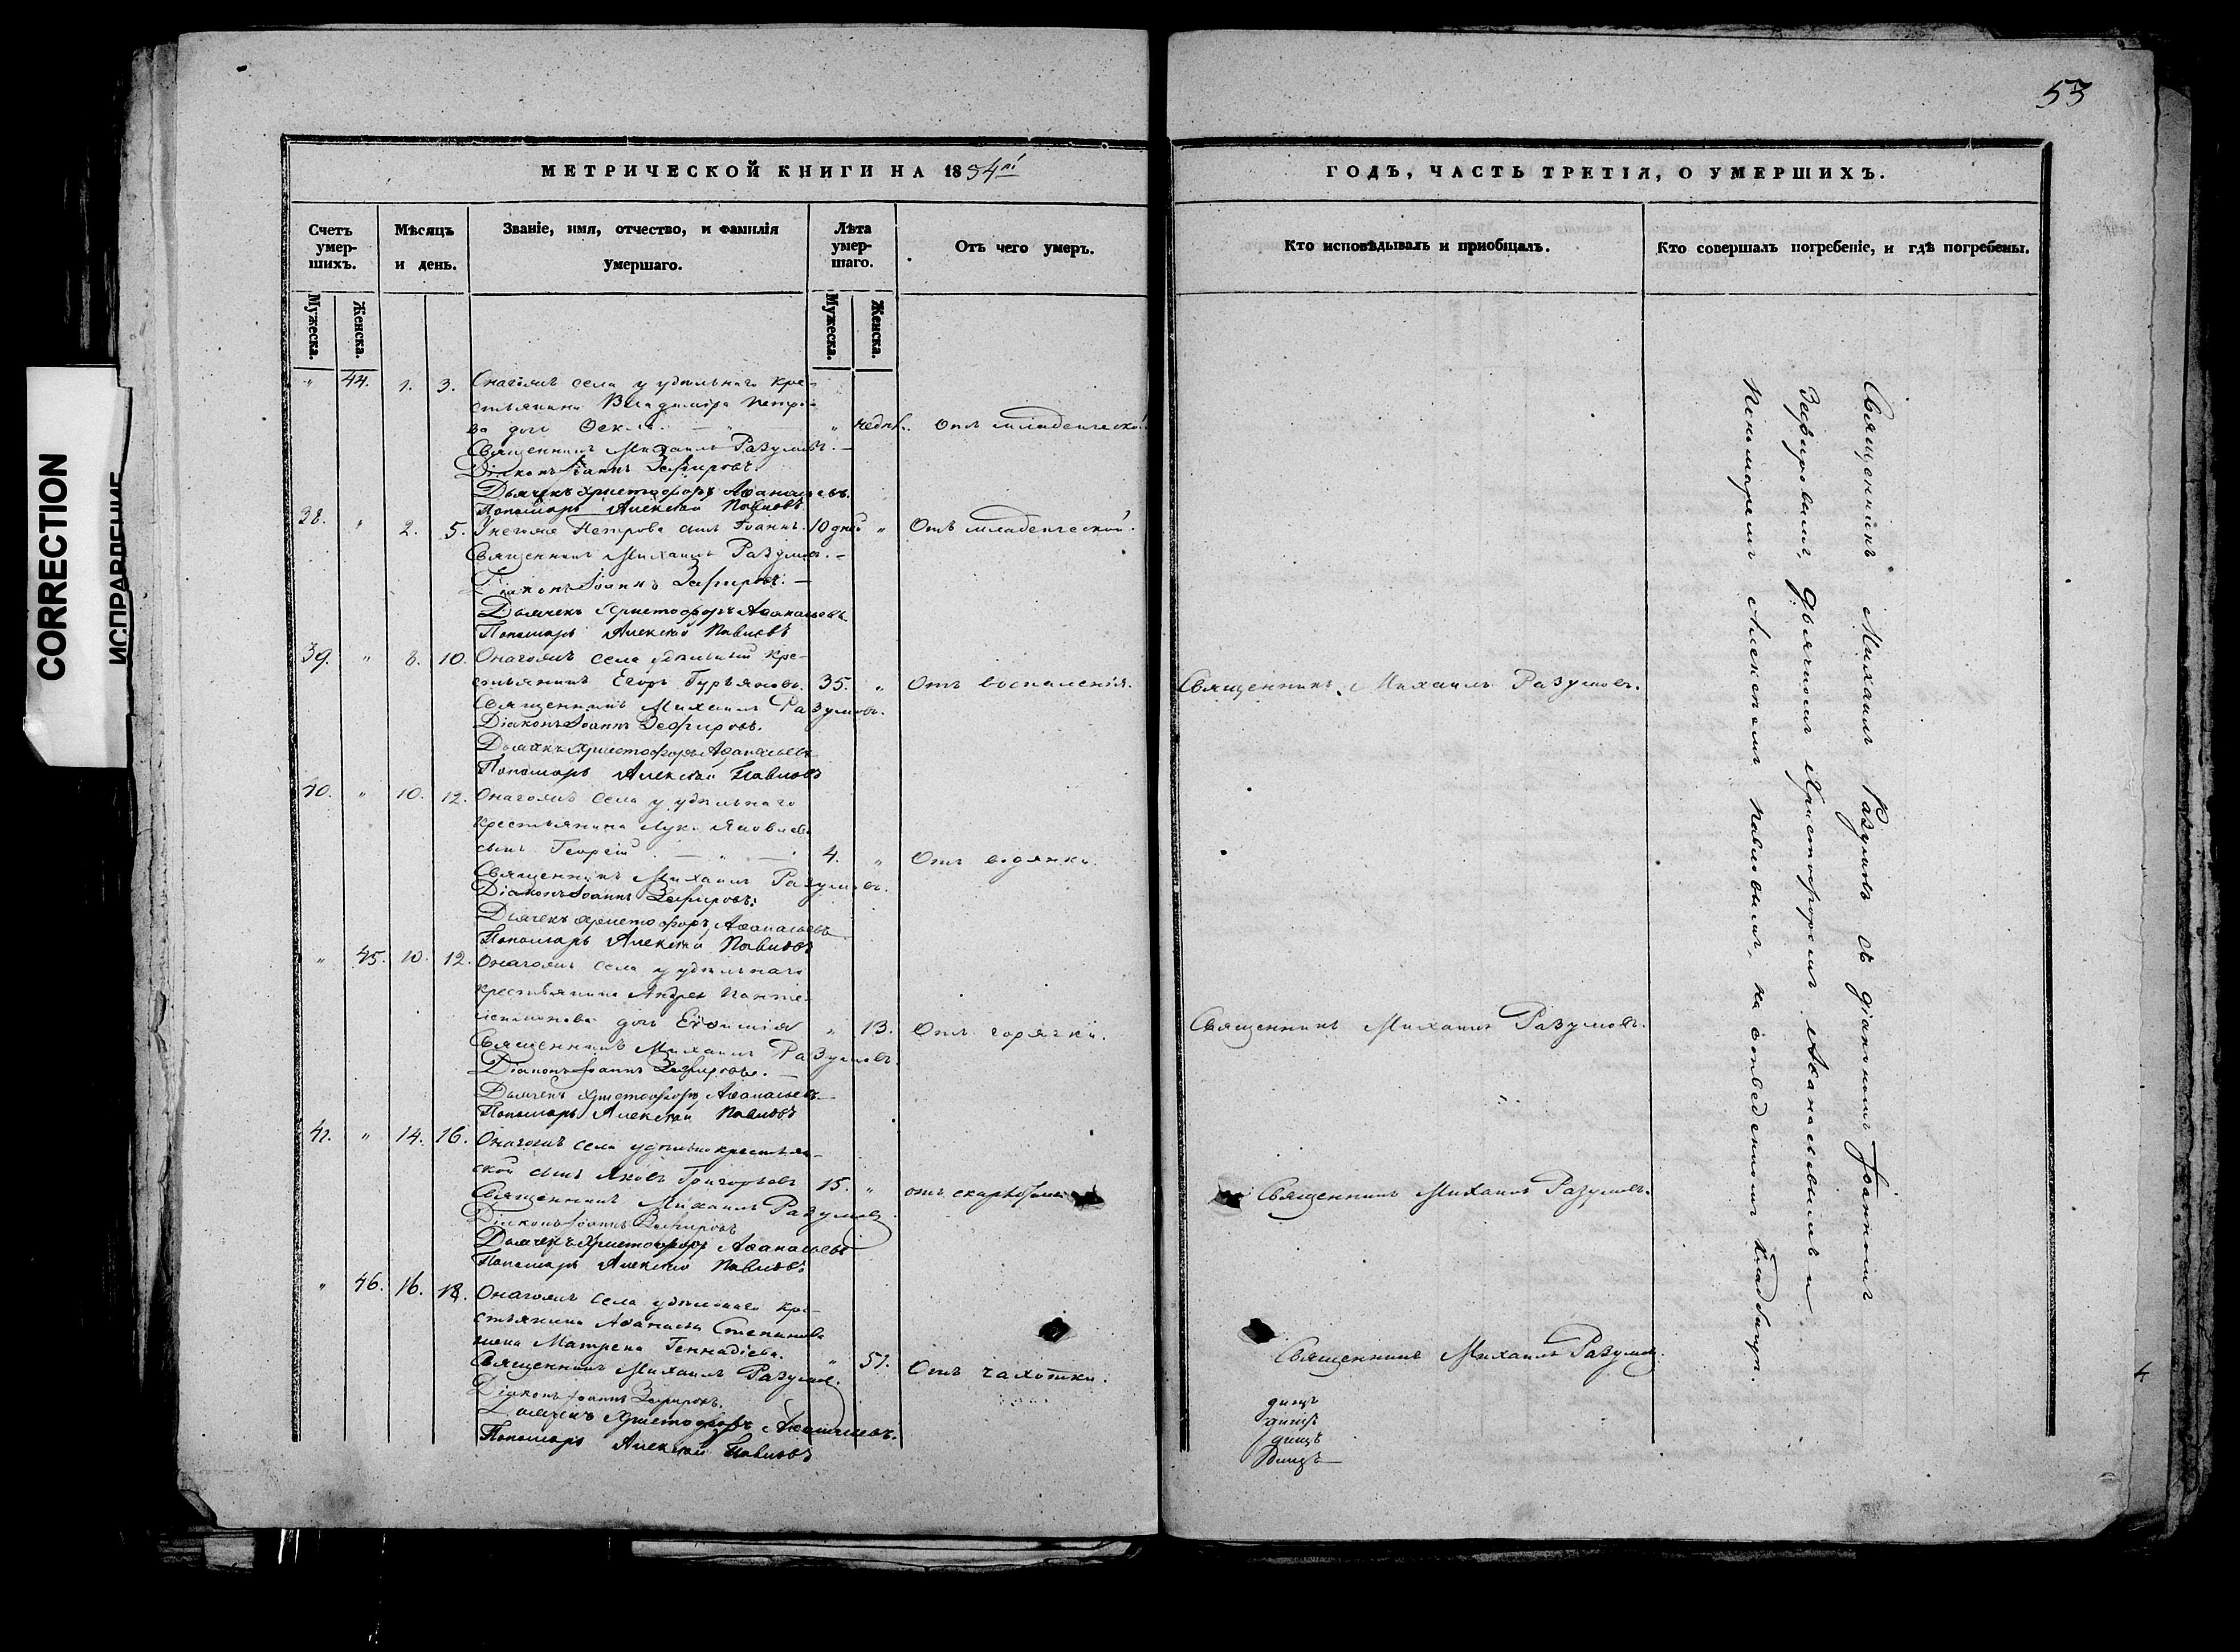 53
МЕТРИЧЕСКОЙ КНИГИ НА 1854й
ГОДЪ, ЧАСТЬ ТРЕТІЯ, О УМЕРШИХЪ.
Счетъ умер-шихъ.
Мѣсяцъ и день.
Званіе, имя, отчество, и фамилія умершаго.
Лѣта умер-шаго.
Отъ чего умеръ.
Кто исповѣдывалъ и пріобщалъ.
Кто совершалъ погребеніе, и гдѣ погребены.
Мужеска. Женска. Мужеска. Женска.
" 44. 1. 3. Онагожъ села у удѣльнаго кре-
стьянина Владиміра Петро-
ва дочь " Отъ младенческой
Священникъ Михаилъ Разумовъ.
Діаконъ Іоаннъ Зефировъ.
Дьячекъ Христофоръ Аѳанасьевъ.
Пономарь Алексѣй Павловъ
38. " 2. 5. Петрова сынъ Іоаннъ. 10 дней " Отъ младенческой.
Священникъ Михаилъ Разумовъ.
Діаконъ Іоаннъ Зефировъ.
Дьячекъ Христофоръ Аѳанасьевъ
Пономарь Алексѣй Павловъ
39. " 8. 10. Онагожъ села удѣльный кре-
стьянинъ Егоръ Гурьяновъ. 35. " Отъ воспаленія. Священникъ Михаилъ Разумовъ.
Священникъ Михаилъ Разумовъ.
Діаконъ Іоаннъ Зефировъ.
Дьячекъ Христофоръ Аѳанасьевъ
Пономарь Алексѣй Павловъ
40. " 10. 12. Онагожъ села у удѣльнаго
крестьянина Луки Яковлева
сынъ Георгій 4. " Отъ водянки.
Священникъ Михаилъ Разумовъ.
Діаконъ Іоаннъ Зефировъ.
Дьячекъ Христофоръ Аѳанасьевъ
Пономарь Алексѣй Павловъ
" 45. 10. 12. Онагожъ села у удѣльнаго
крестьянина Андрея Панте-
леимонова дочь Евѳимія " 13. Отъ горячки. Священникъ Михаилъ Разумовъ.
Священникъ Михаилъ Разумовъ.
Діаконъ Іоаннъ Зефировъ.
Дьячекъ Христофоръ Аѳанасьевъ
Пономарь Алексѣй Павловъ
41. " 14. 16. Онагожъ села удѣльно крестьян-
ской сынъ Яковъ Григорьевъ 15. " отъ Священникъ Михаилъ Разумовъ.
Священникъ Михаилъ Разумовъ
Діаконъ Іоаннъ Зефировъ
Дьячекъ Христофоръ Аѳанасьевъ
Пономарь Алексѣй Павловъ
" 46. 16. 18. Онагожъ села удѣльнаго кре-
стьянина Аѳанасья Степанова
жена Матрена Геннадіева. " 51. Отъ чахотки. Священникъ Михаилъ Разумовъ.
Священникъ Михаилъ Разумовъ.
Діаконъ Іоаннъ Зефировъ.
Дьячекъ Христофоръ Аѳанасьевъ.
Пономарь Алексѣй Павловъ
Священникъ Михаилъ Разумовъ съ діакономъ Іоанномъ
Зефировымъ, дьячкомъ Христофоромъ Аѳанасьевымъ и
пономаремъ Алексѣемъ Павловымъ, на отведенномъ кладбищѣ.
CORRECTION
ИСПРАВЛЕНИЕ